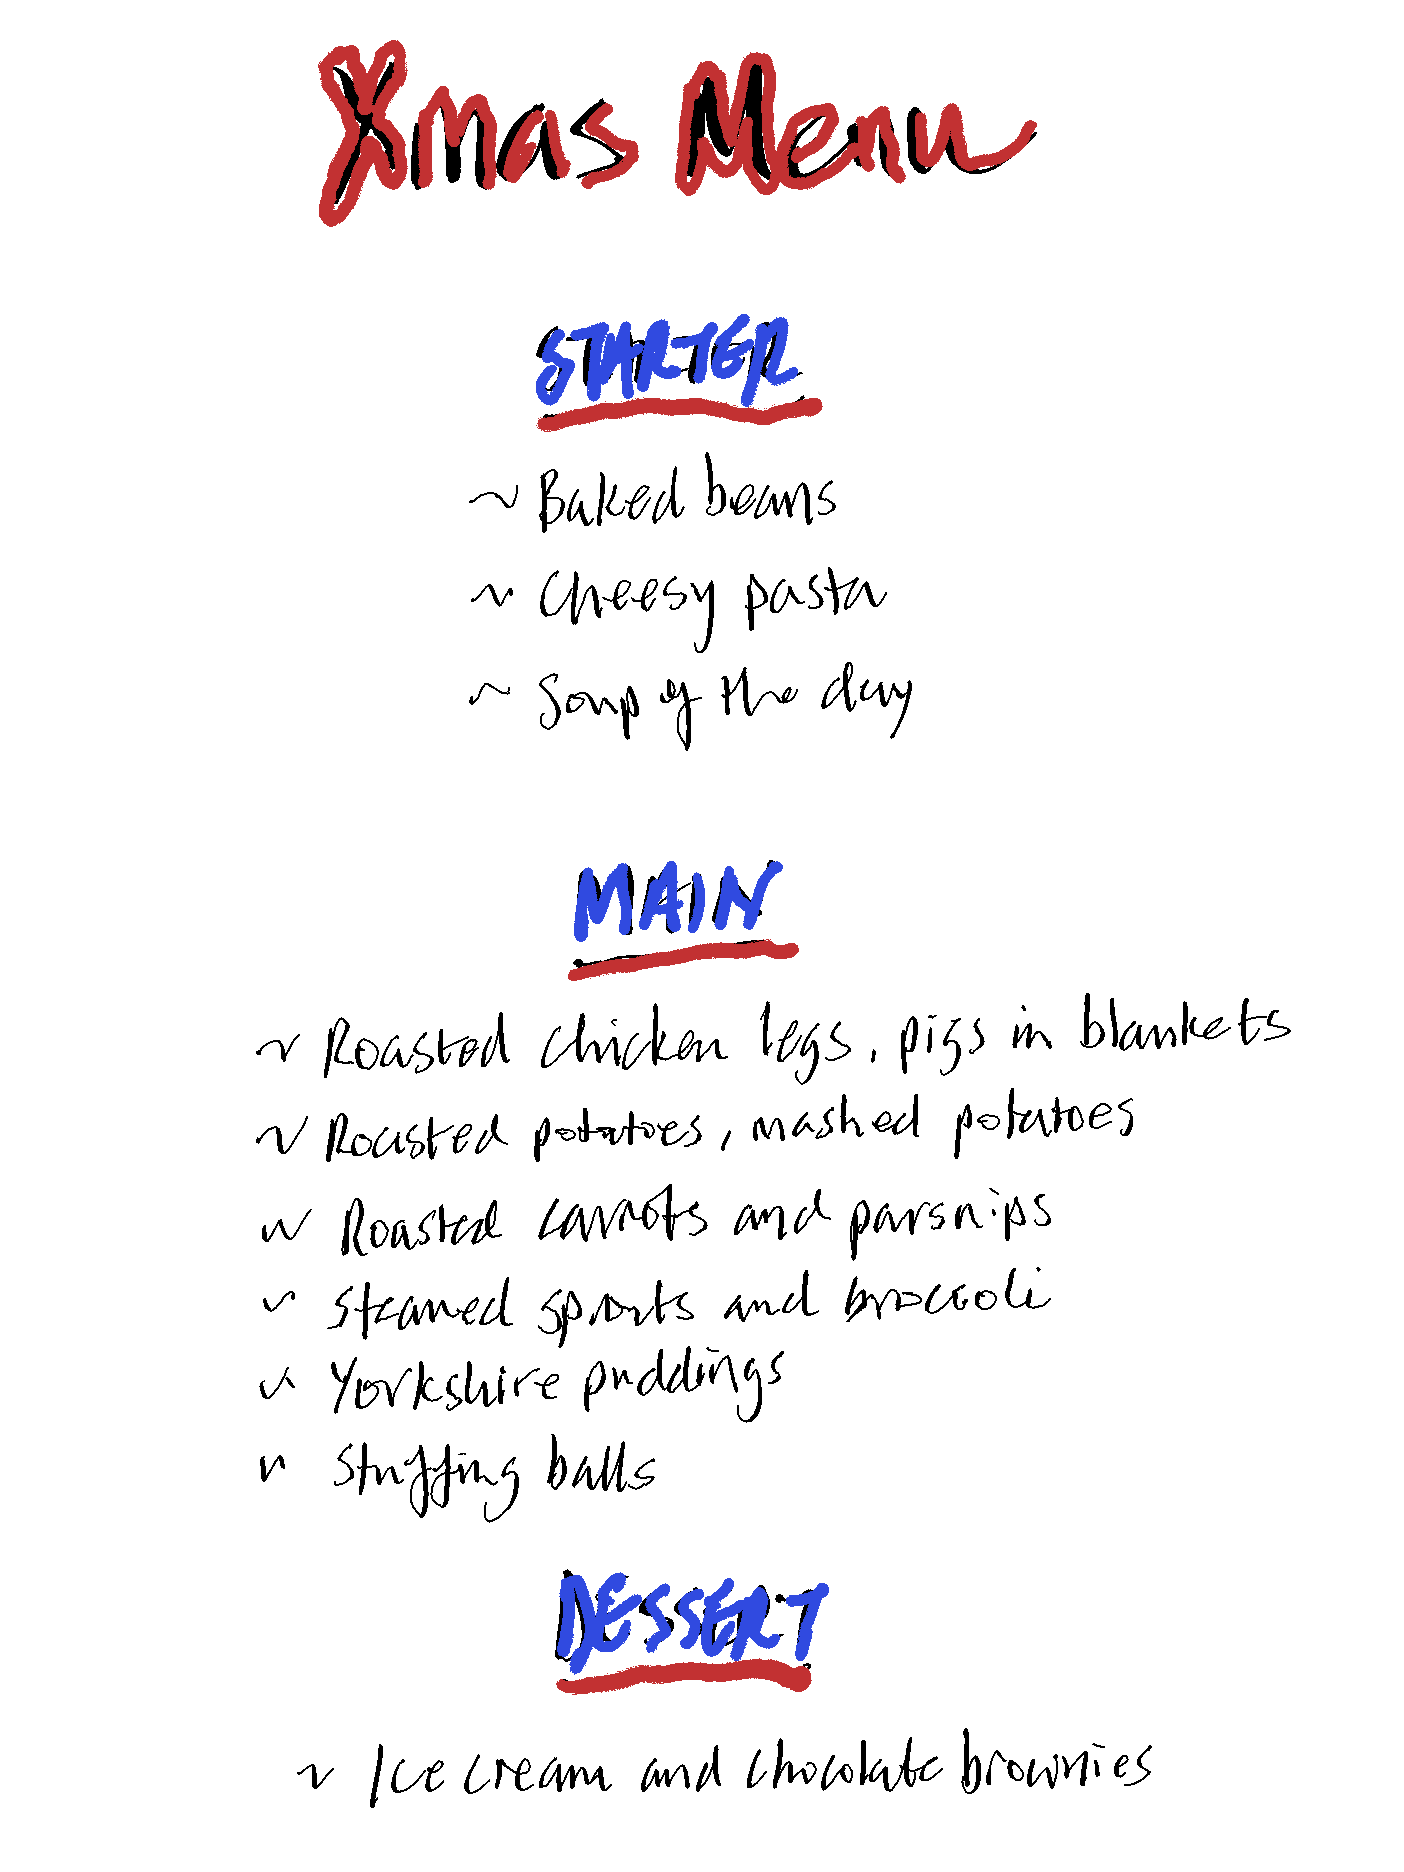 Xmas Menu
STARTER
~ Baked beans
~ Cheesy pasta
~ Soup of the day
MAIN
~ Roasted chicken legs, pigs in blankets
~ Roasted potatoes, mashed potatoes
~ Roasted carrots and parsnips
~ Steamed sprouts and broccoli
~ Yorkshire puddings
~ Stuffing balls
DESSERT
~ Ice cream and chocolate brownies